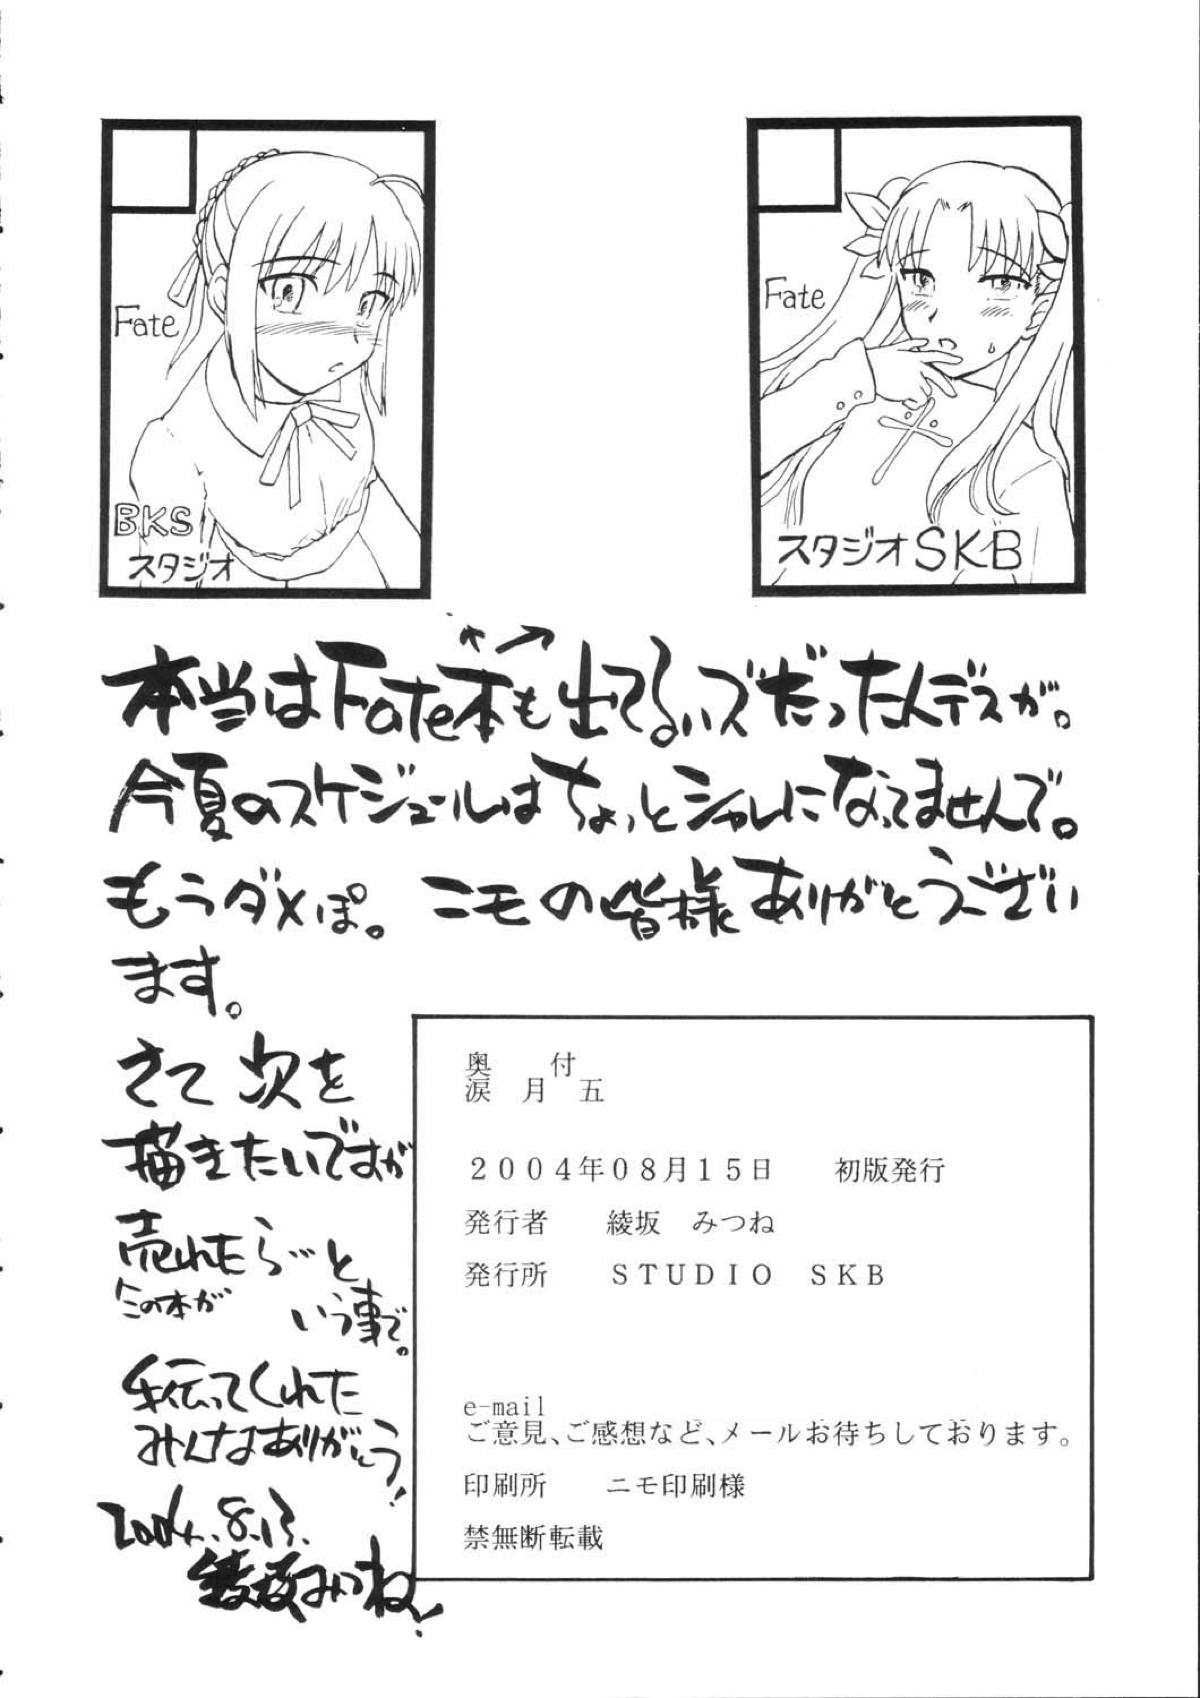 Fate
BKS
スタジオ
Fate
スタジオSKB
本当はFate本も出てるハズだったんデスが。
今夏のスケジュールはちょっとシャレになってませんで。
もうダメぽ。 ニモの皆様ありがとうござい
ます。
さて次を
描きたいですが
売れたら…と
この本が
いう事で。
手伝ってくれた
みんなありがとう!
2004.8.13.
綾坂みつね!
奥 付
涙 月 五
2004年08月15日 初版発行
発行者 綾坂 みつね
発行所 STUDIO SKB
e-mail
ご意見、ご感想など、メールお待ちしております。
印刷所 ニモ印刷様
禁無断転載